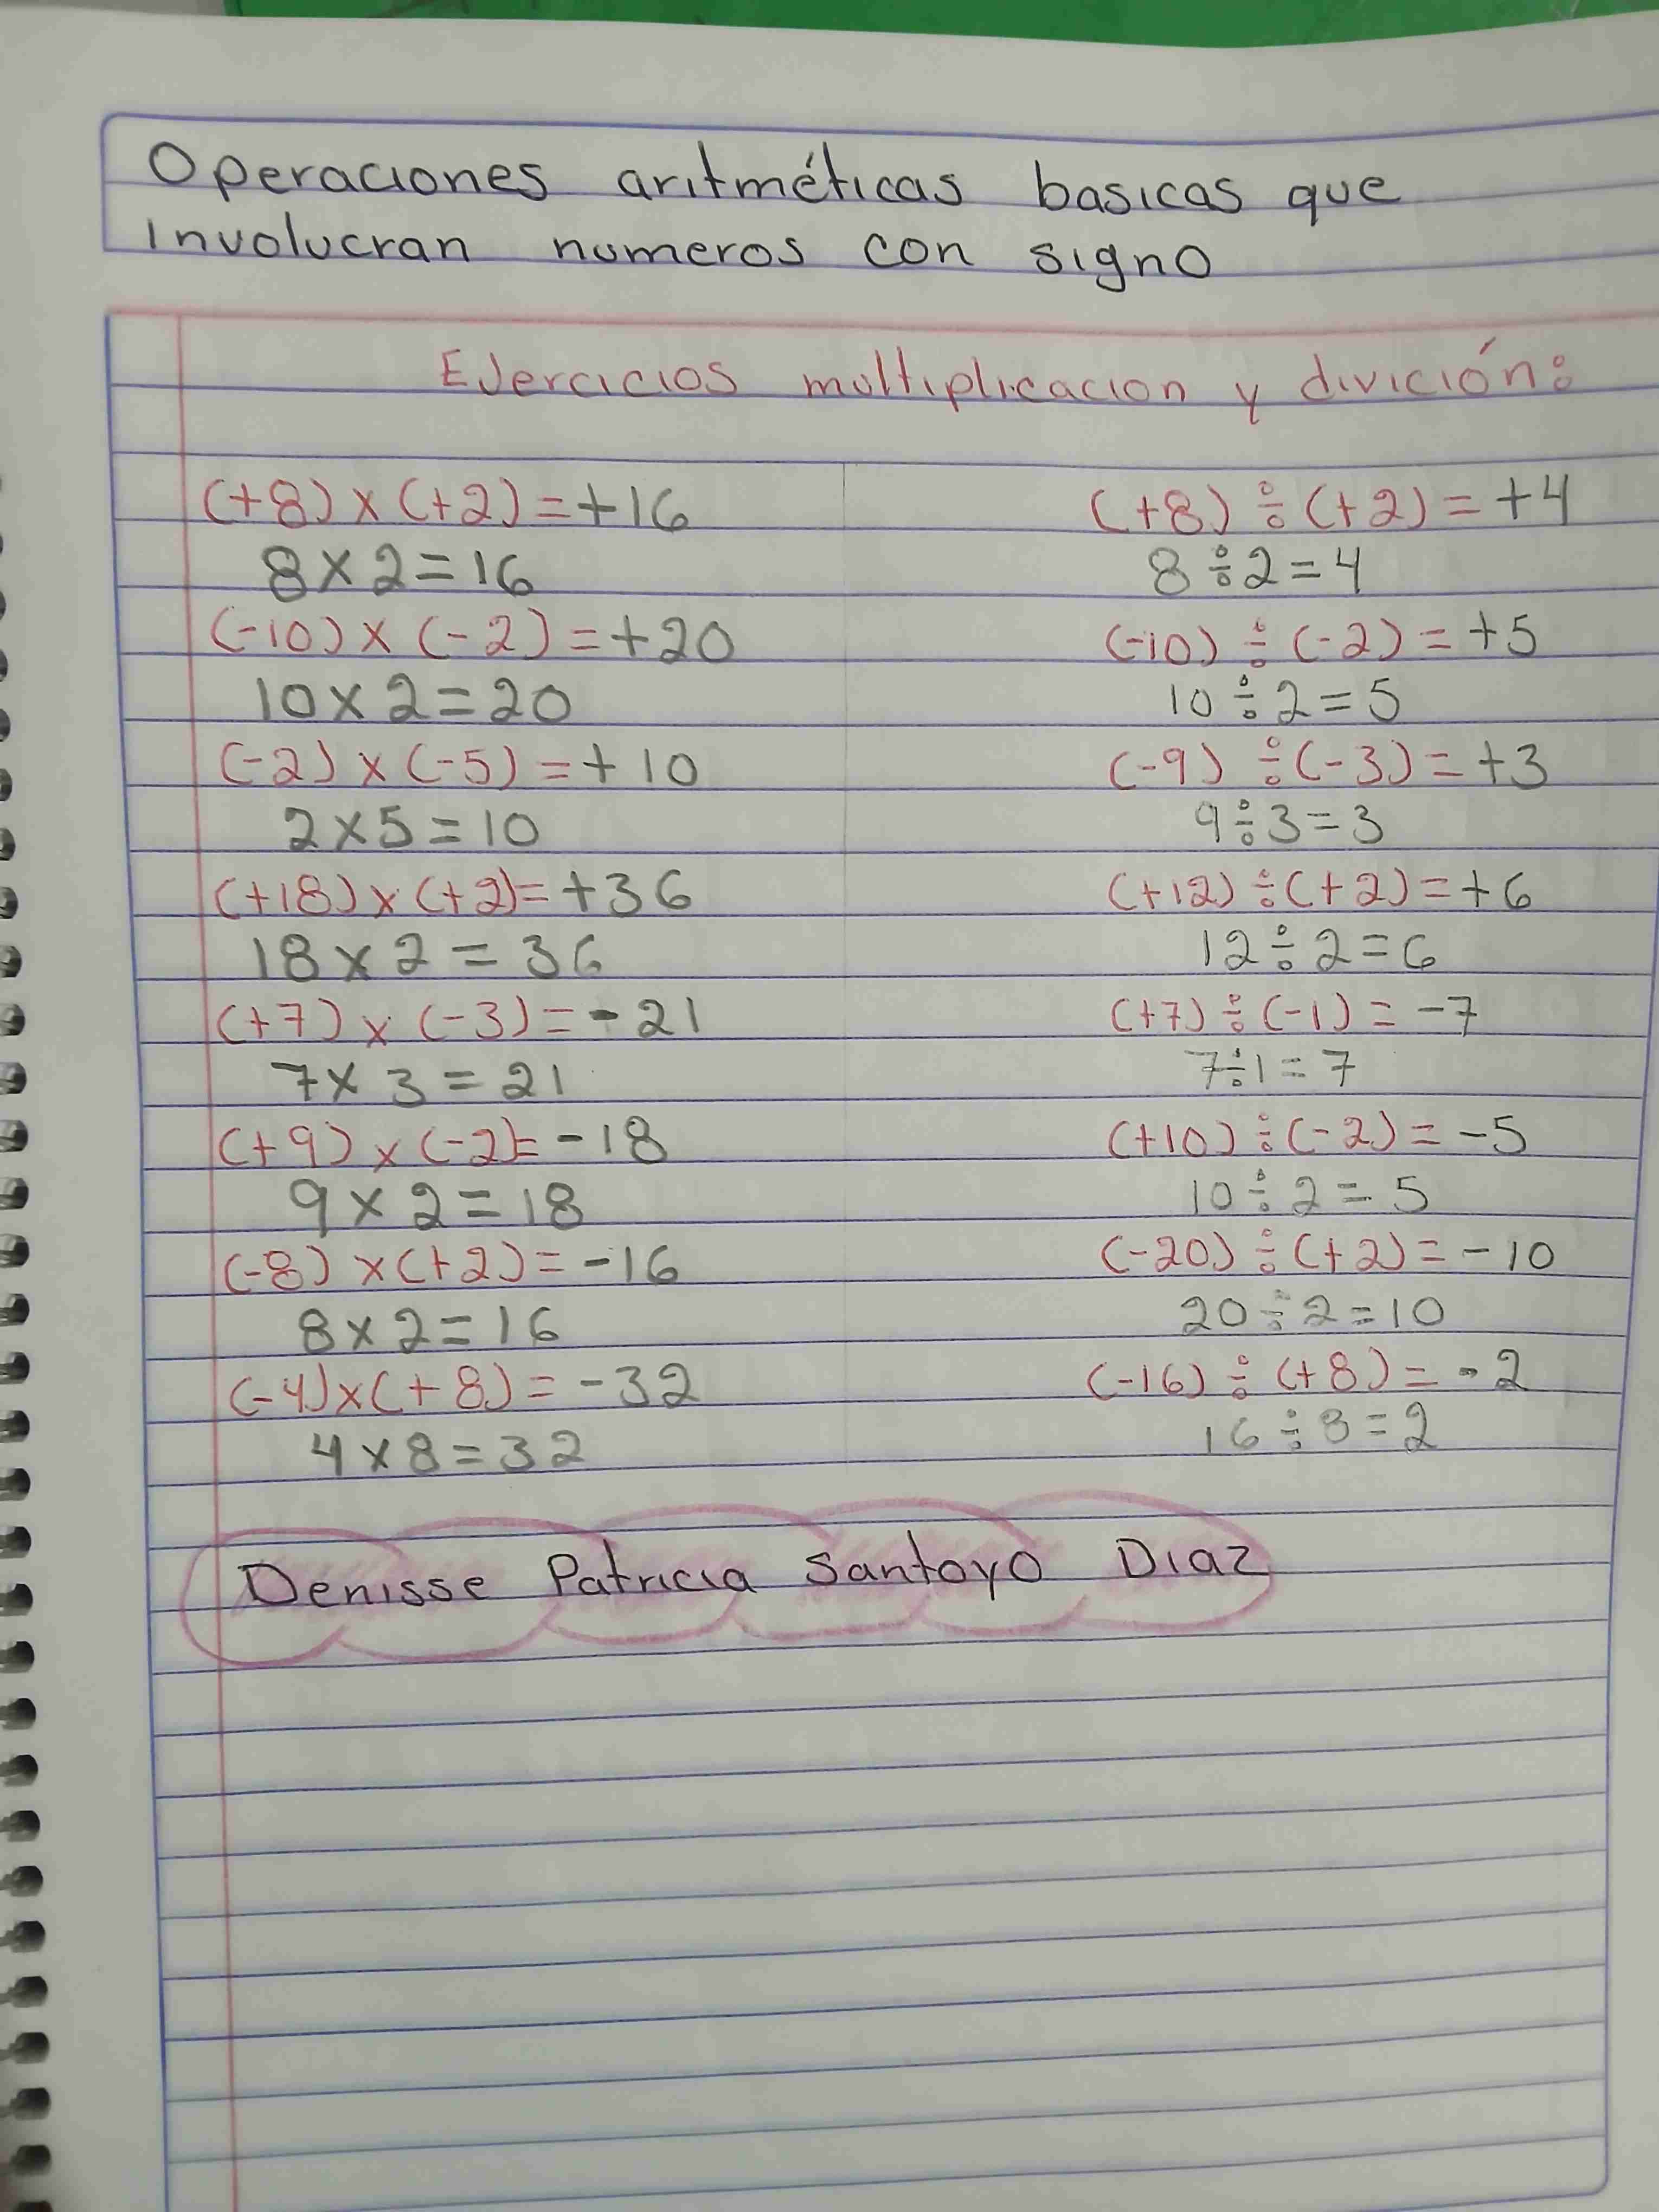 Operaciones aritméticas basicas que
involucran numeros con signo
Ejercicios multiplicacion y divición:
(+8) x (+2) = +16
8 x 2 = 16
(-10) x (-2) = +20
10 x 2 = 20
(-2) x (-5) = +10
2 x 5 = 10
(+18) x (+2) = +36
18 x 2 = 36
(+7) x (-3) = -21
7 x 3 = 21
(+9) x (-2) = -18
9 x 2 = 18
(-8) x (+2) = -16
8 x 2 = 16
(-4) x (+8) = -32
4 x 8 = 32
(+8) ÷ (+2) = +4
8 ÷ 2 = 4
(-10) ÷ (-2) = +5
10 ÷ 2 = 5
(-9) ÷ (-3) = +3
9 ÷ 3 = 3
(+12) ÷ (+2) = +6
12 ÷ 2 = 6
(+7) ÷ (-1) = -7
7 ÷ 1 = 7
(+10) ÷ (-2) = -5
10 ÷ 2 = 5
(-20) ÷ (+2) = -10
20 ÷ 2 = 10
(-16) ÷ (+8) = -2
16 ÷ 8 = 2
Denisse Patricia Santoyo Diaz